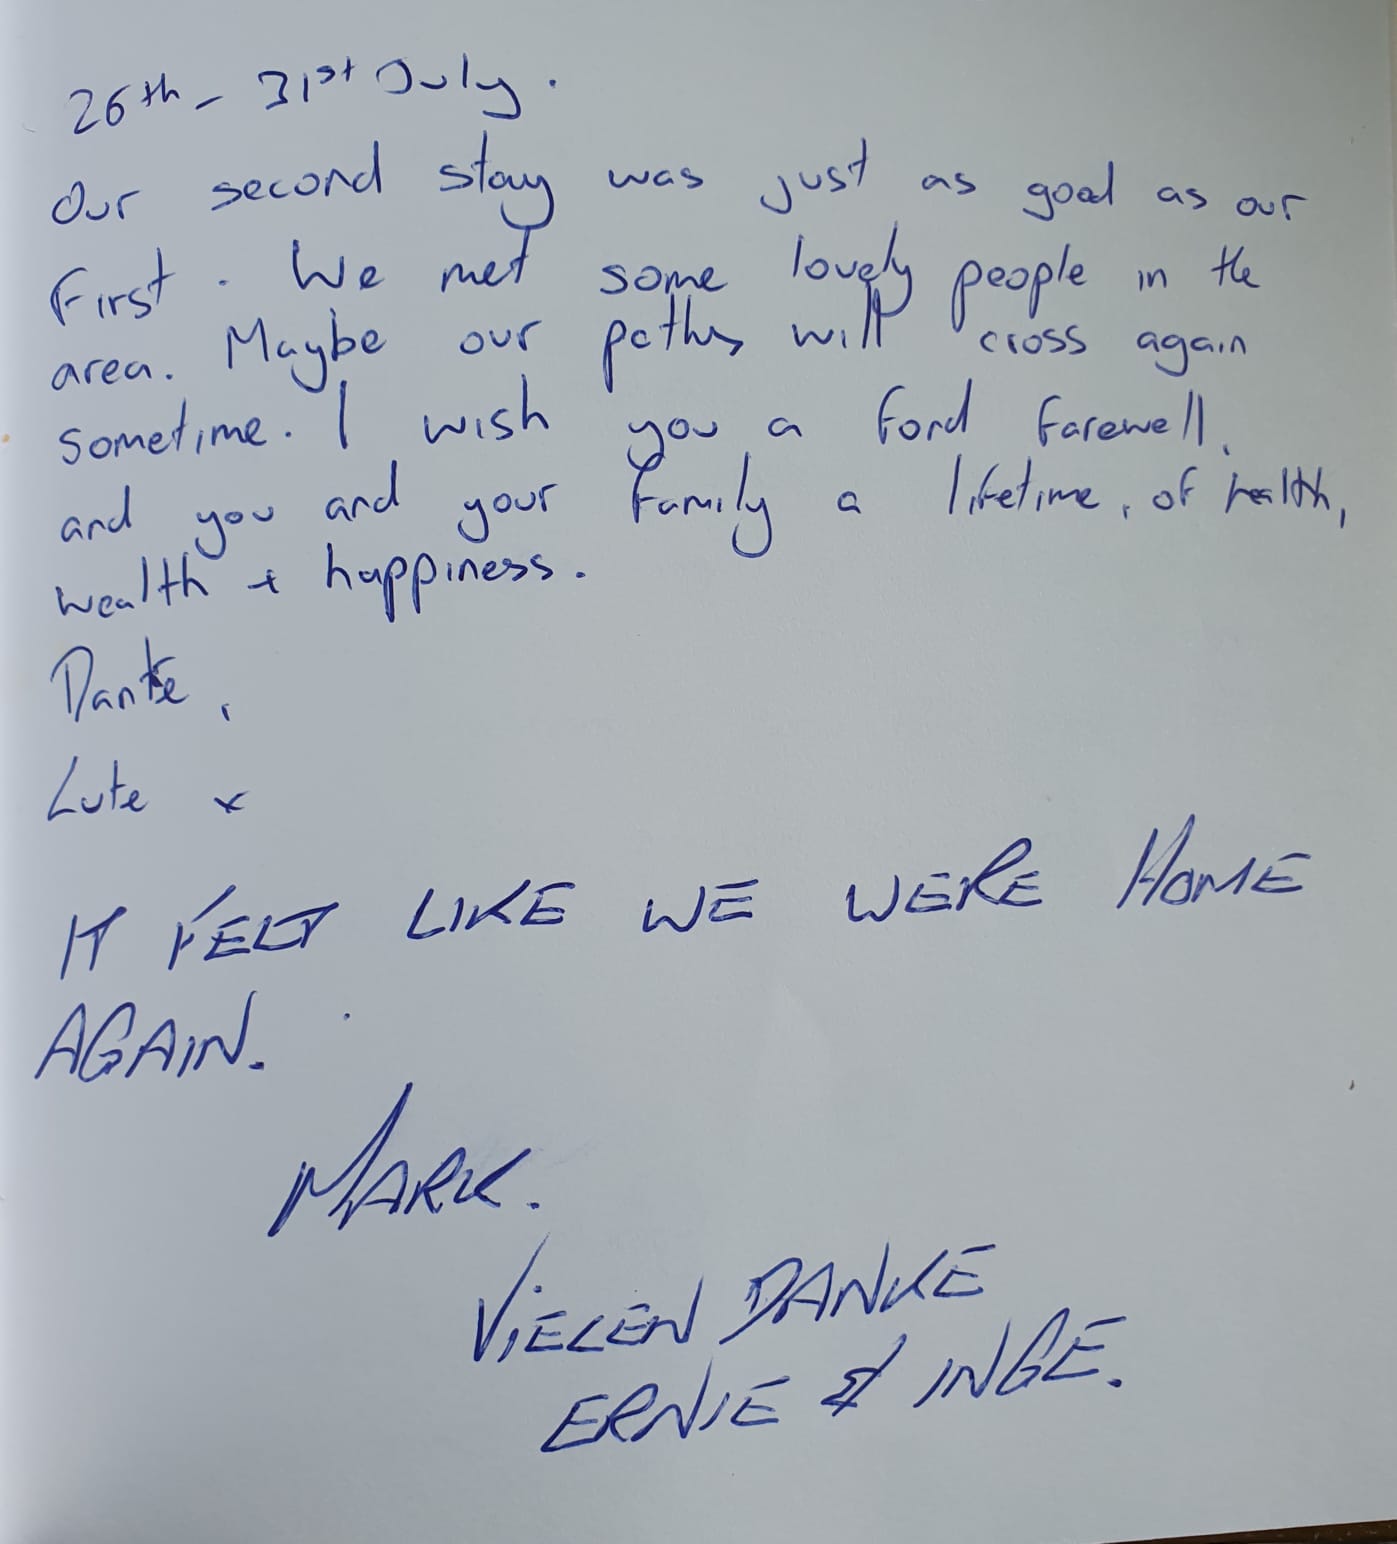 26th - 31st July.
Our second stay was just as good as our
First. We met some lovely people in the
area. Maybe our paths will cross again
sometime. I wish you a fond farewell,
and you and your family a lifetime, of health,
wealth + happiness.
Danke,
Lute x
IT FELT LIKE WE WERE HOME
AGAIN.
MARK.
VIELEN DANKE
ERNIE & INGE.